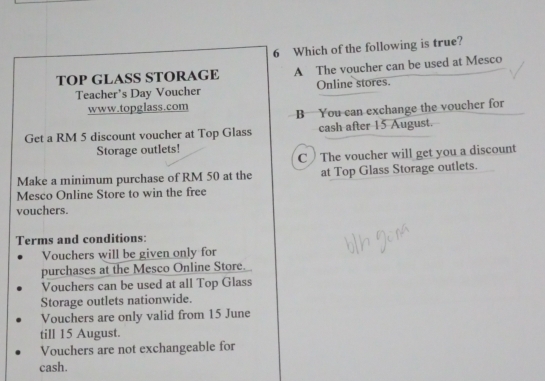 TOP GLASS STORAGE
Teacher's Day Voucher
www.topglass.com
Get a RM 5 discount voucher at Top Glass
Storage outlets!
Make a minimum purchase of RM 50 at the
Mesco Online Store to win the free
vouchers.
Terms and conditions:
• Vouchers will be given only for
purchases at the Mesco Online Store.
• Vouchers can be used at all Top Glass
Storage outlets nationwide.
• Vouchers are only valid from 15 June
till 15 August.
• Vouchers are not exchangeable for
cash.
6 Which of the following is true?
A The voucher can be used at Mesco
Online stores.
B You can exchange the voucher for
cash after 15 August.
C The voucher will get you a discount
at Top Glass Storage outlets.